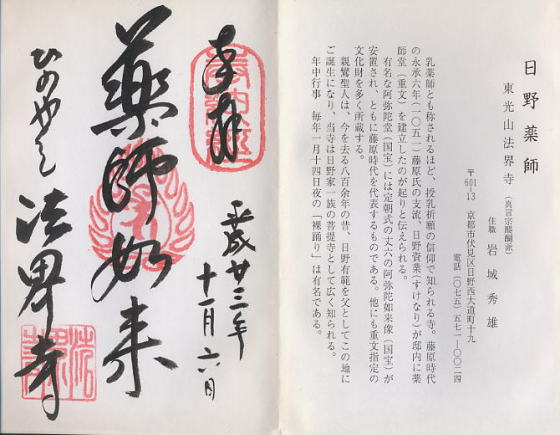 日野薬師
東光山法界寺
(真言宗醍醐派)
住職 岩城秀雄
〒601-13 京都市伏見区日野西大道町十九
電話(〇七五)五七一―〇〇二四
乳薬師とも称されるほど、授乳祈願の信仰で知られる寺。藤原時代
の永承六年(一〇五一)藤原氏の支流、日野資業(すけなり)が邸内に薬
師堂(重文)を建立したのが起りと伝えられる。
有名な阿弥陀堂(国宝)には定朝式の丈六の阿弥陀如来像(国宝)が
安置され、ともに藤原時代を代表するものである。他にも重文指定の
文化財を多く所蔵する。
親鸞聖人は、今を去る八百余年の昔、日野有範を父としてこの地に
ご誕生になり、当寺は日野家一族の菩提寺として広く知られる。
年中行事 毎年一月十四日夜の「裸踊り」は有名である。
奉拝
平成廿三年
十一月六日
薬師如来
ひのやくし 法界寺